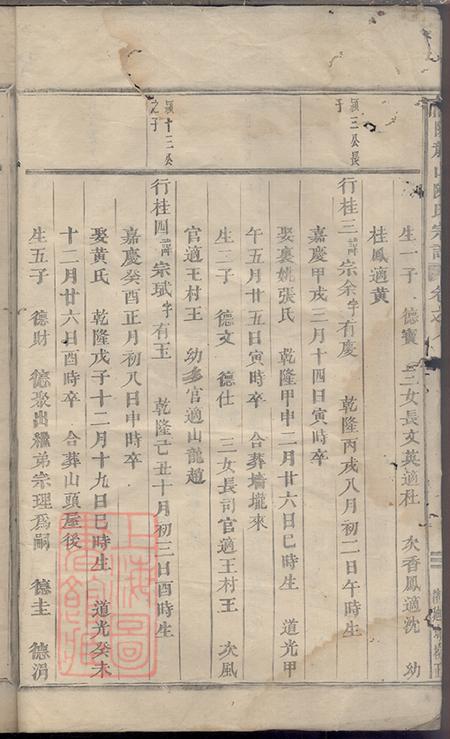 生一子 德寳 三女長文英適杜 次香鳳適沈 幼
桂鳳適黄
穎三公長
子
行桂三 諱宗余 字有慶 乾隆丙戌八月初二日午時生
嘉慶甲戌三月十四日寅時卒
娶裏姚張氏 乾隆甲申二月廿六日巳時生 道光甲
午五月廿五日寅時卒 合葬墻壠來
生二子 德文 德仕 三女長司官適王村王 次風
官適王村王 幼多官適山龍趙
穎十三公
之子
行桂四 諱宗斌 字有玉 乾隆己丑十月初三日酉時生
嘉慶癸酉正月初八日申時卒
娶黄氏 乾隆戊子十二月十九日巳時生 道光癸未
十二月廿六日酉時卒 合葬山頭屋後
生五子 德財 德聚出繼弟宗理爲嗣 德圭 德涓
上海圖